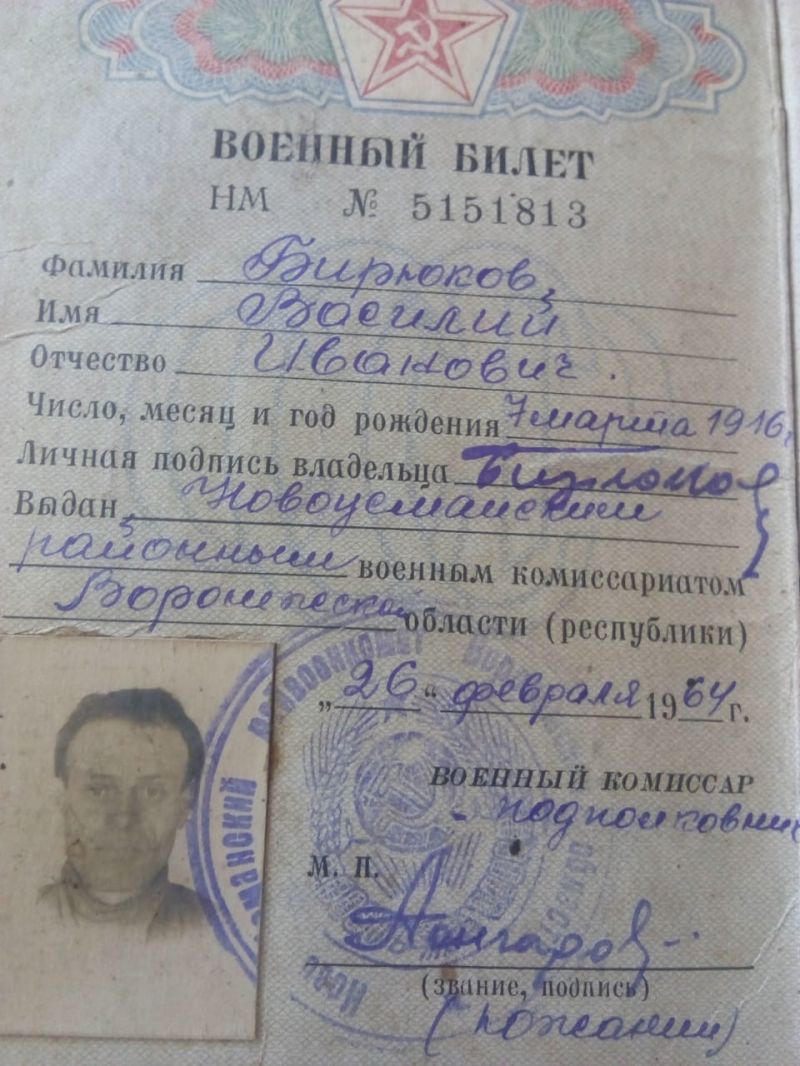 ВОЕННЫЙ БИЛЕТ
НМ № 5151813
Фамилия Бирюков
Имя Василий
Отчество Иванович.
Число, месяц и год рождения 7 марта 1916г.
Личная подпись владельца Бирюков
Выдан Новоусманским
районным военным комиссариатом
Воронежской области (республики)
„26“ февраля 1964 г.
ВОЕННЫЙ КОМИССАР
подполковник
М. П.
(звание, подпись)